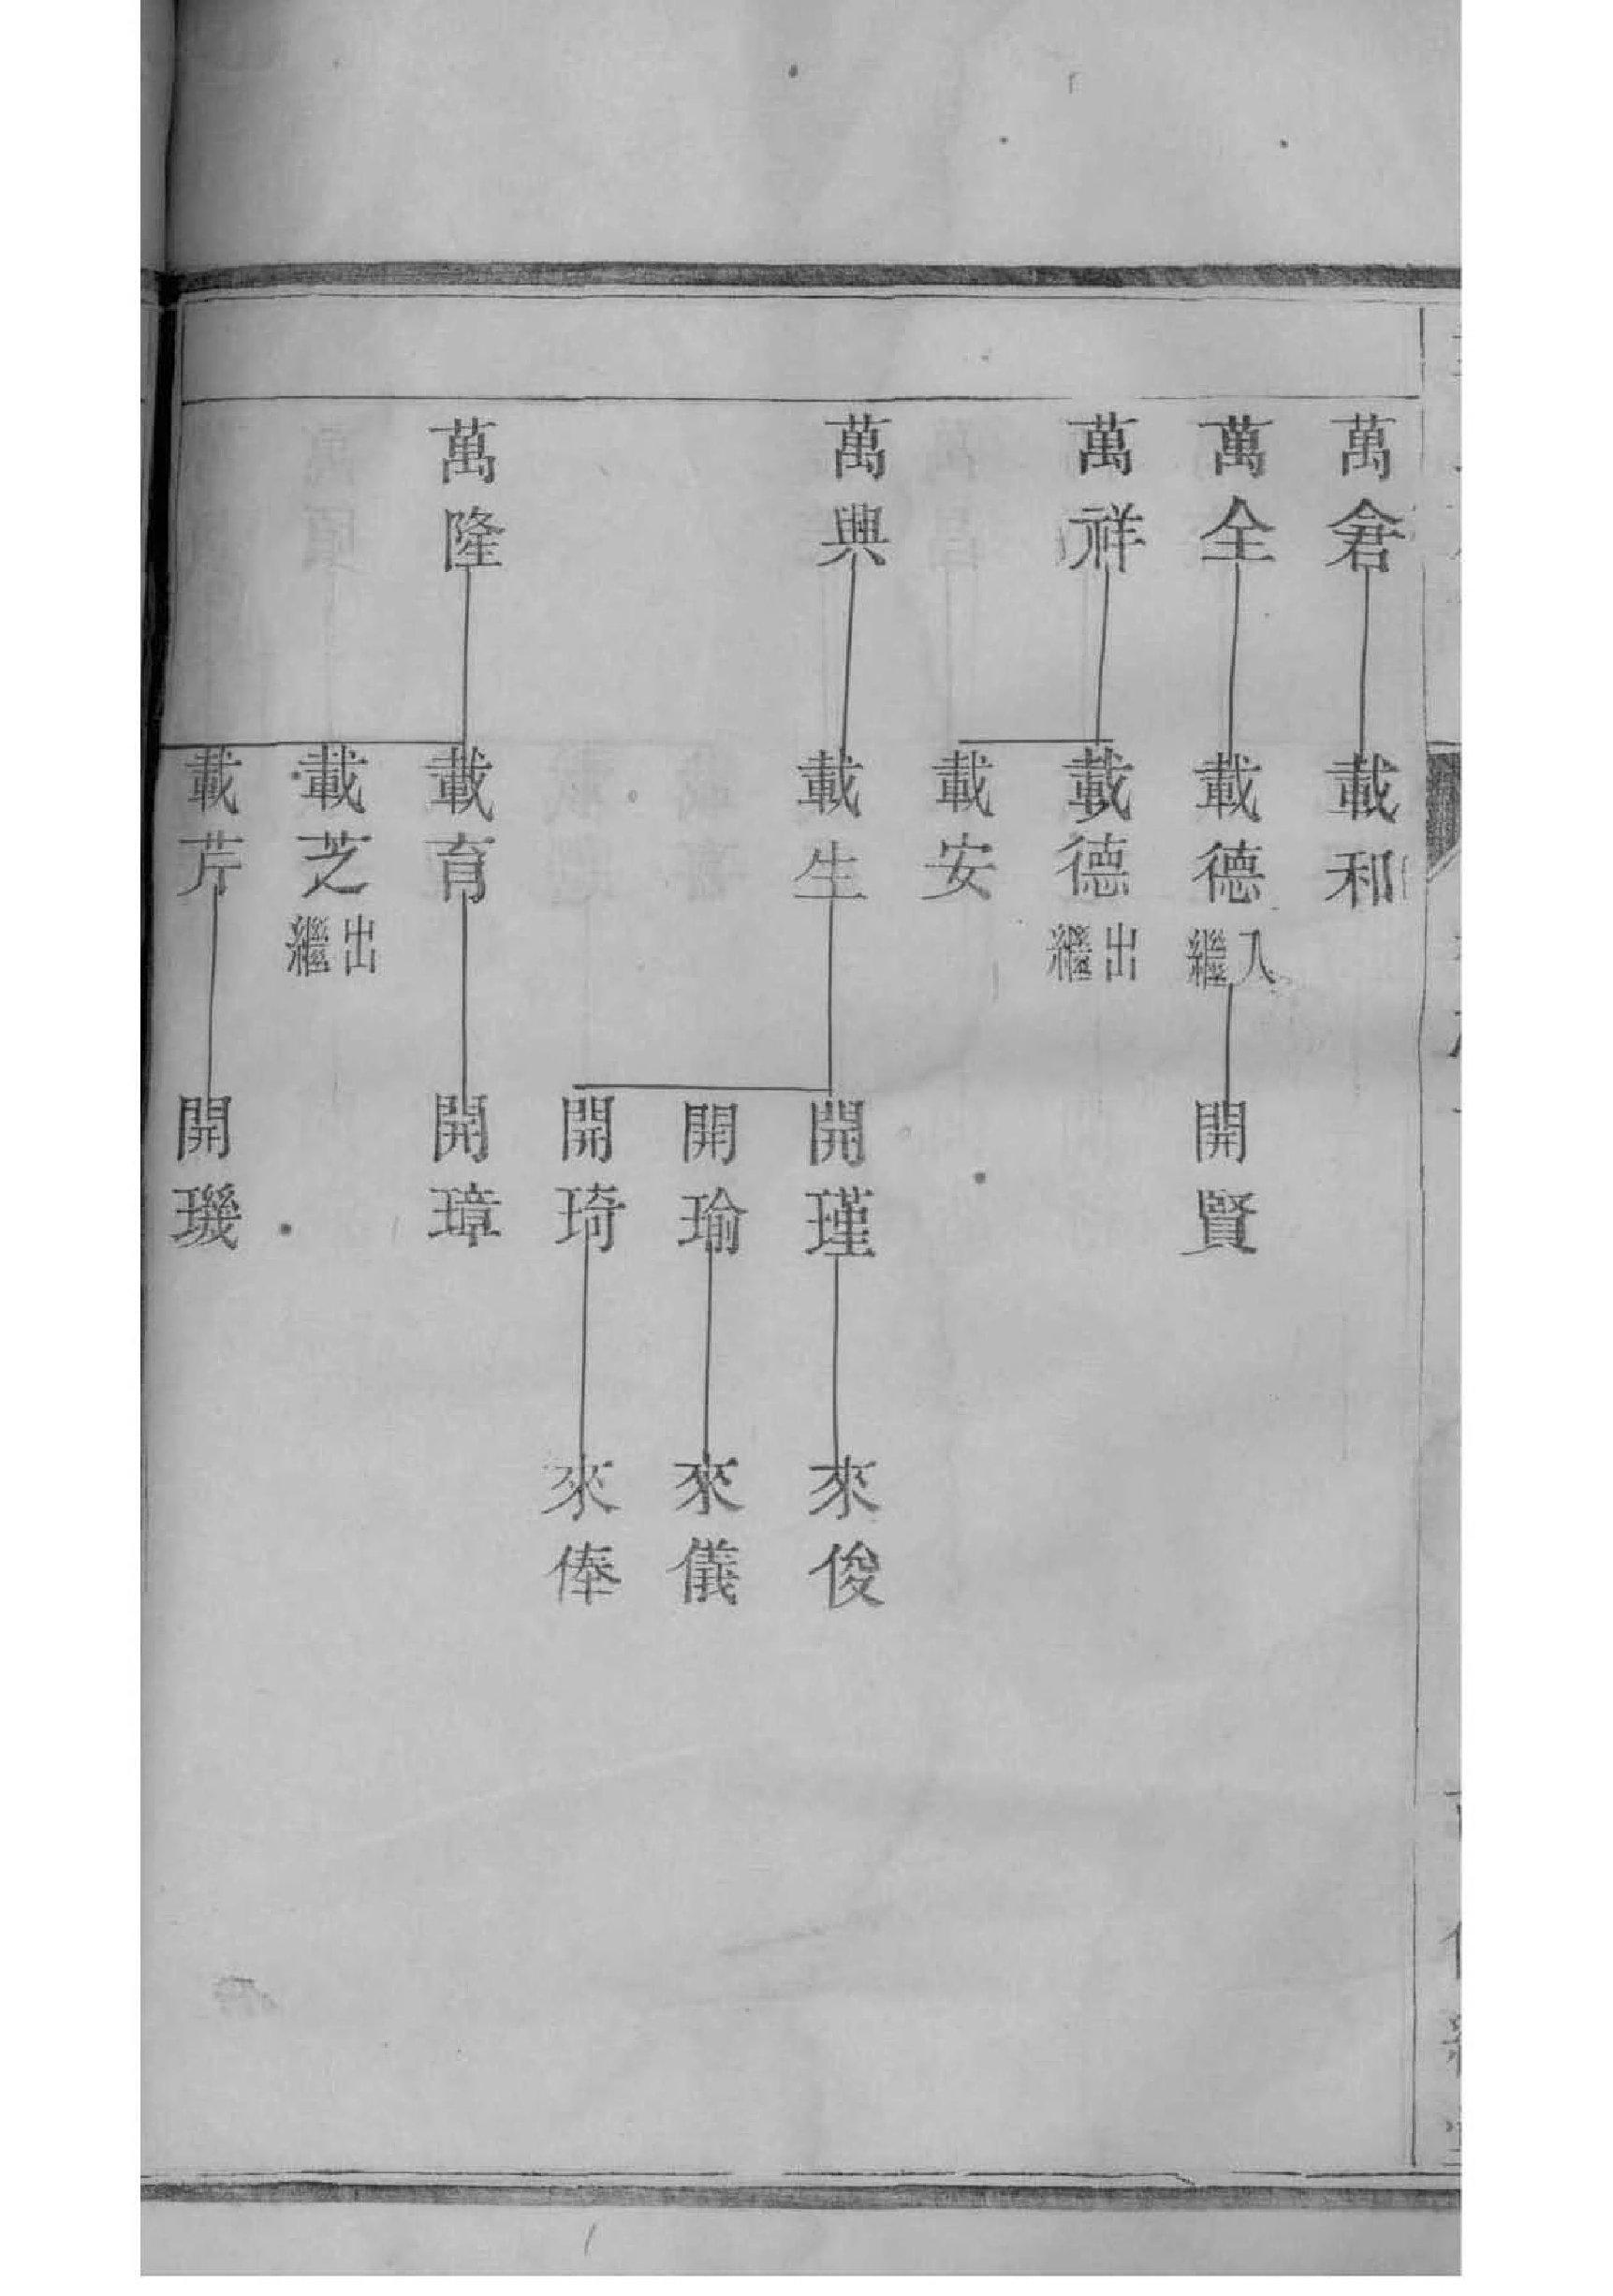 萬倉
載和
萬全
載德
入繼
開賢
萬祥
載德
出繼
載安
萬興
載生
開瑾
來俊
開瑜
來儀
開琦
來俸
萬隆
載育
開璋
載芝
出繼
載芹
開璣